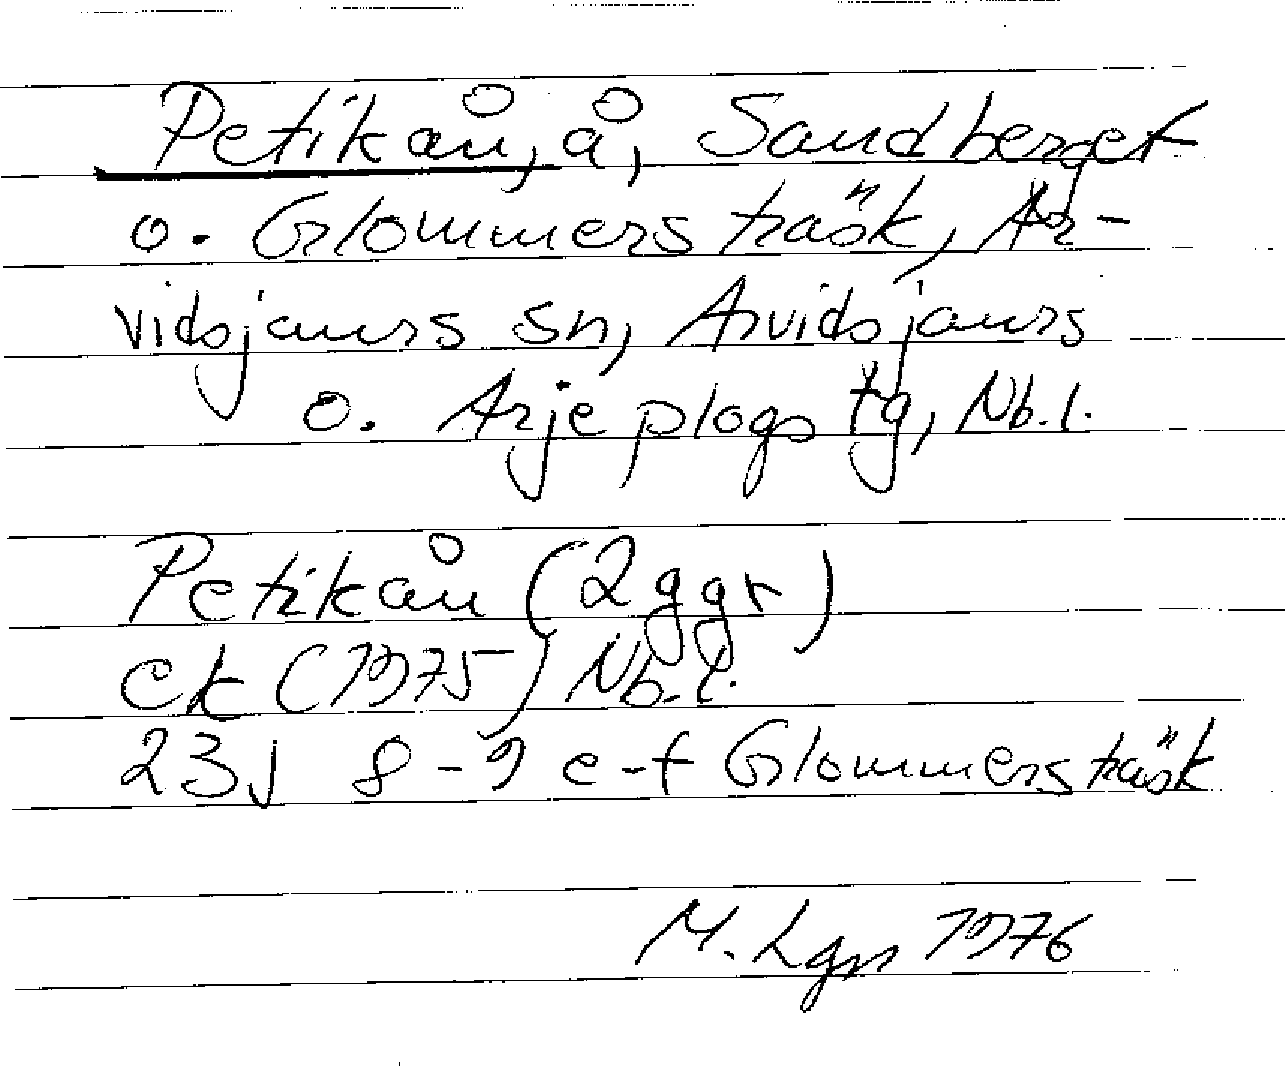 Petikån, å, Sandberget
o. Glommersträsk, Ar-
vidsjaurs sn, Arvidsjaurs
o. Arjeplogs tg, Nb.l.
Petikån (2 ggr)
ek (1975) Nb.l.
23j 8-9 e-f Glommersträsk
M. Lgn 1976